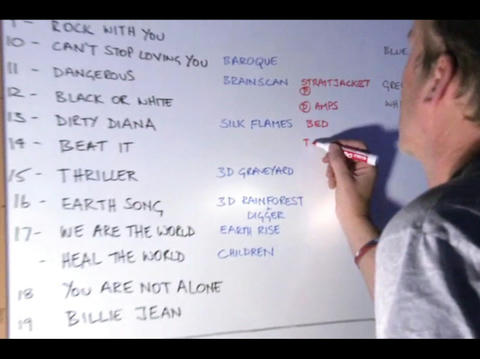 9 - ROCK WITH YOU
10 - CAN'T STOP LOVING YOU BAROQUE BLUE
11 - DANGEROUS BRAINSCAN STRAITJACKET
P
12 - BLACK OR WHITE D AMPS WH
13 - DIRTY DIANA SILK FLAMES BED
14 - BEAT IT T
15 - THRILLER 3D GRAVEYARD
16 - EARTH SONG 3D RAINFOREST
+ DIGGER
17 - WE ARE THE WORLD EARTH RISE
- HEAL THE WORLD CHILDREN
18 YOU ARE NOT ALONE
19 BILLIE JEAN